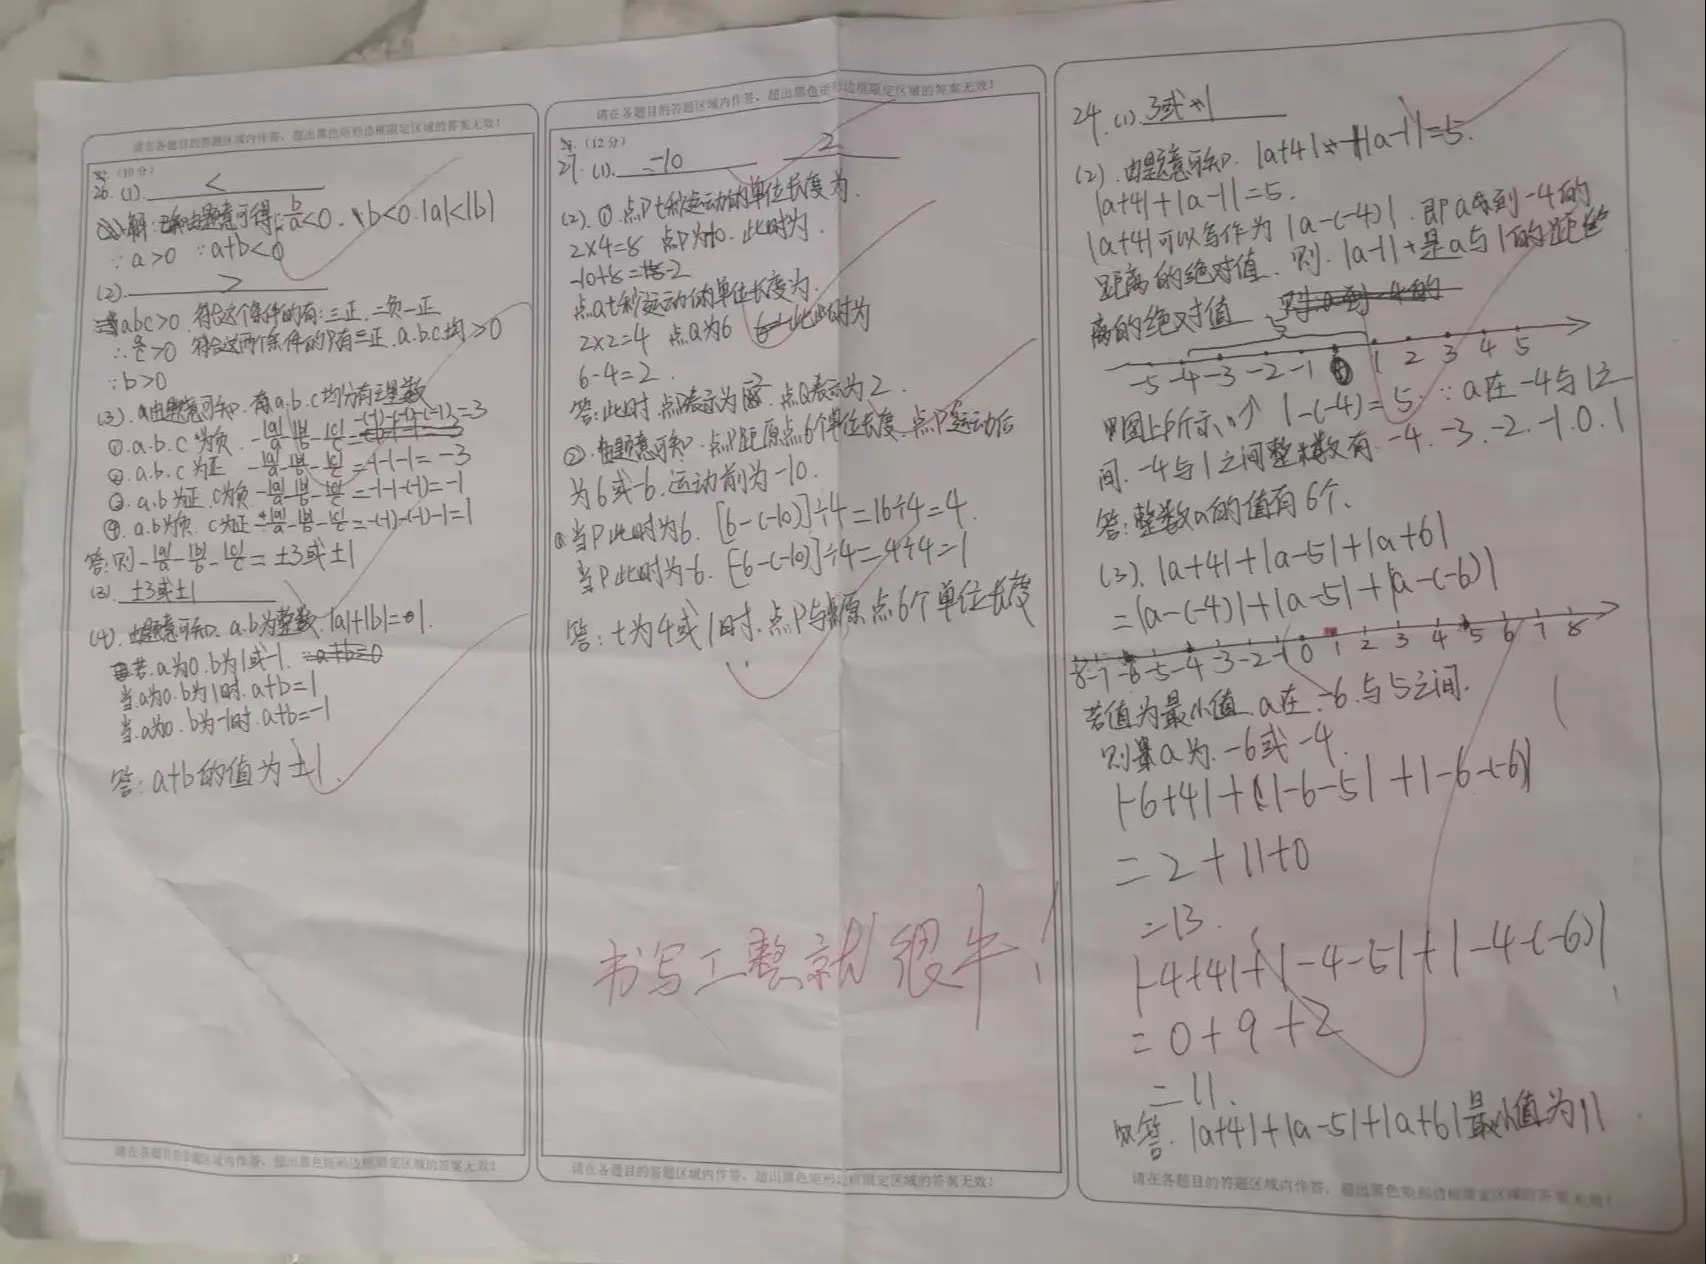 请在各题目的答题区域内作答,超出黑色矩形边框限定区域的答案无效!
(10分)
26.(1). <
解:由题意可得:b/a<0.∵b<0.|a|<|b|
∵a>0 ∵a+b<0
(2). >
abc>0 符合这个条件的有:三正.二负一正
∴a/c>0 符合这两个条件的只有三正.a.b.c均>0
∵b>0
(3).由题意可知.a.b.c均分有理数
①.a.b.c为负.-|a|/a-|b|/b-|c|/c=-(-1)-(-1)-(-1)=3
②.a.b.c为正 -|a|/a-|b|/b-|c|/c=-1-1-1=-3
③.a.b为正.c为负-|a|/a-|b|/b-|c|/c=-1-1-(-1)=-1
④.a.b为负.c为正-|a|/a-|b|/b-|c|/c=-(-1)-(-1)-1=1
答:则-|a|/a-|b|/b-|c|/c=±3或±1
(3). ±3或±1
(4).由题意可知.a.b为整数.|a|+|b|=1.
若.a为0.b为1或-1.
当.a为0.b为1时.a+b=1
当.a为0.b为-1时.a+b=-1
答:a+b的值为±1.
请在各题目的答题区域内作答,超出黑色矩形边框限定区域的答案无效!
请在各题目的答题区域内作答,超出黑色矩形边框限定区域的答案无效!
(12分)
27.(1). -10 2
(2).①.点P t秒运动的单位长度为.
2×4=8 点P为-10.此时为.
-10+8=-2
点Q t秒运动的单位长度为.
2×2=4 点Q为6 此时为
6-4=2.
答:此时点P表示为-2.点Q表示为2.
②.由题意可知.点P距原点6个单位长度.点P运动后
为6或-6.运动前为-10.
当P此时为6.[6-(-10)]÷4=16÷4=4.
当P此时为-6.[-6-(-10)]÷4=4÷4=1
答:t为4或1时.点P与原点6个单位长度
书写工整就很牛!
请在各题目的答题区域内作答,超出黑色矩形边框限定区域的答案无效!
24.(1). 3或-1
(2).由题意可知.|a+4|+|a-1|=5.
|a+4|+|a-1|=5.
|a+4|可以写作为|a-(-4)|.即a到-4的
距离的绝对值.则.|a-1|是a与1的距
离的绝对值
5
-5 -4 -3 -2 -1 0 1 2 3 4 5
如图上所示 1-(-4)=5.∵a在-4与1之
间.-4与1之间整数有.-4.-3.-2.-1.0.1
答:整数a的值有6个.
(3).|a+4|+|a-5|+|a+6|
=|a-(-4)|+|a-5|+|a-(-6)|
-8 -7 -6 -5 -4 -3 -2 -1 0 1 2 3 4 5 6 7 8
若值为最小值.a在.-6.与5之间.
则a为.-6或-4.
|-6+4|+|-6-5|+|-6-(-6)|
=2+11+0
=13.
|-4+4|+|-4-5|+|-4-(-6)|
=0+9+2
=11.
答.|a+4|+|a-5|+|a+6|最小值为11
请在各题目的答题区域内作答,超出黑色矩形边框限定区域的答案无效!